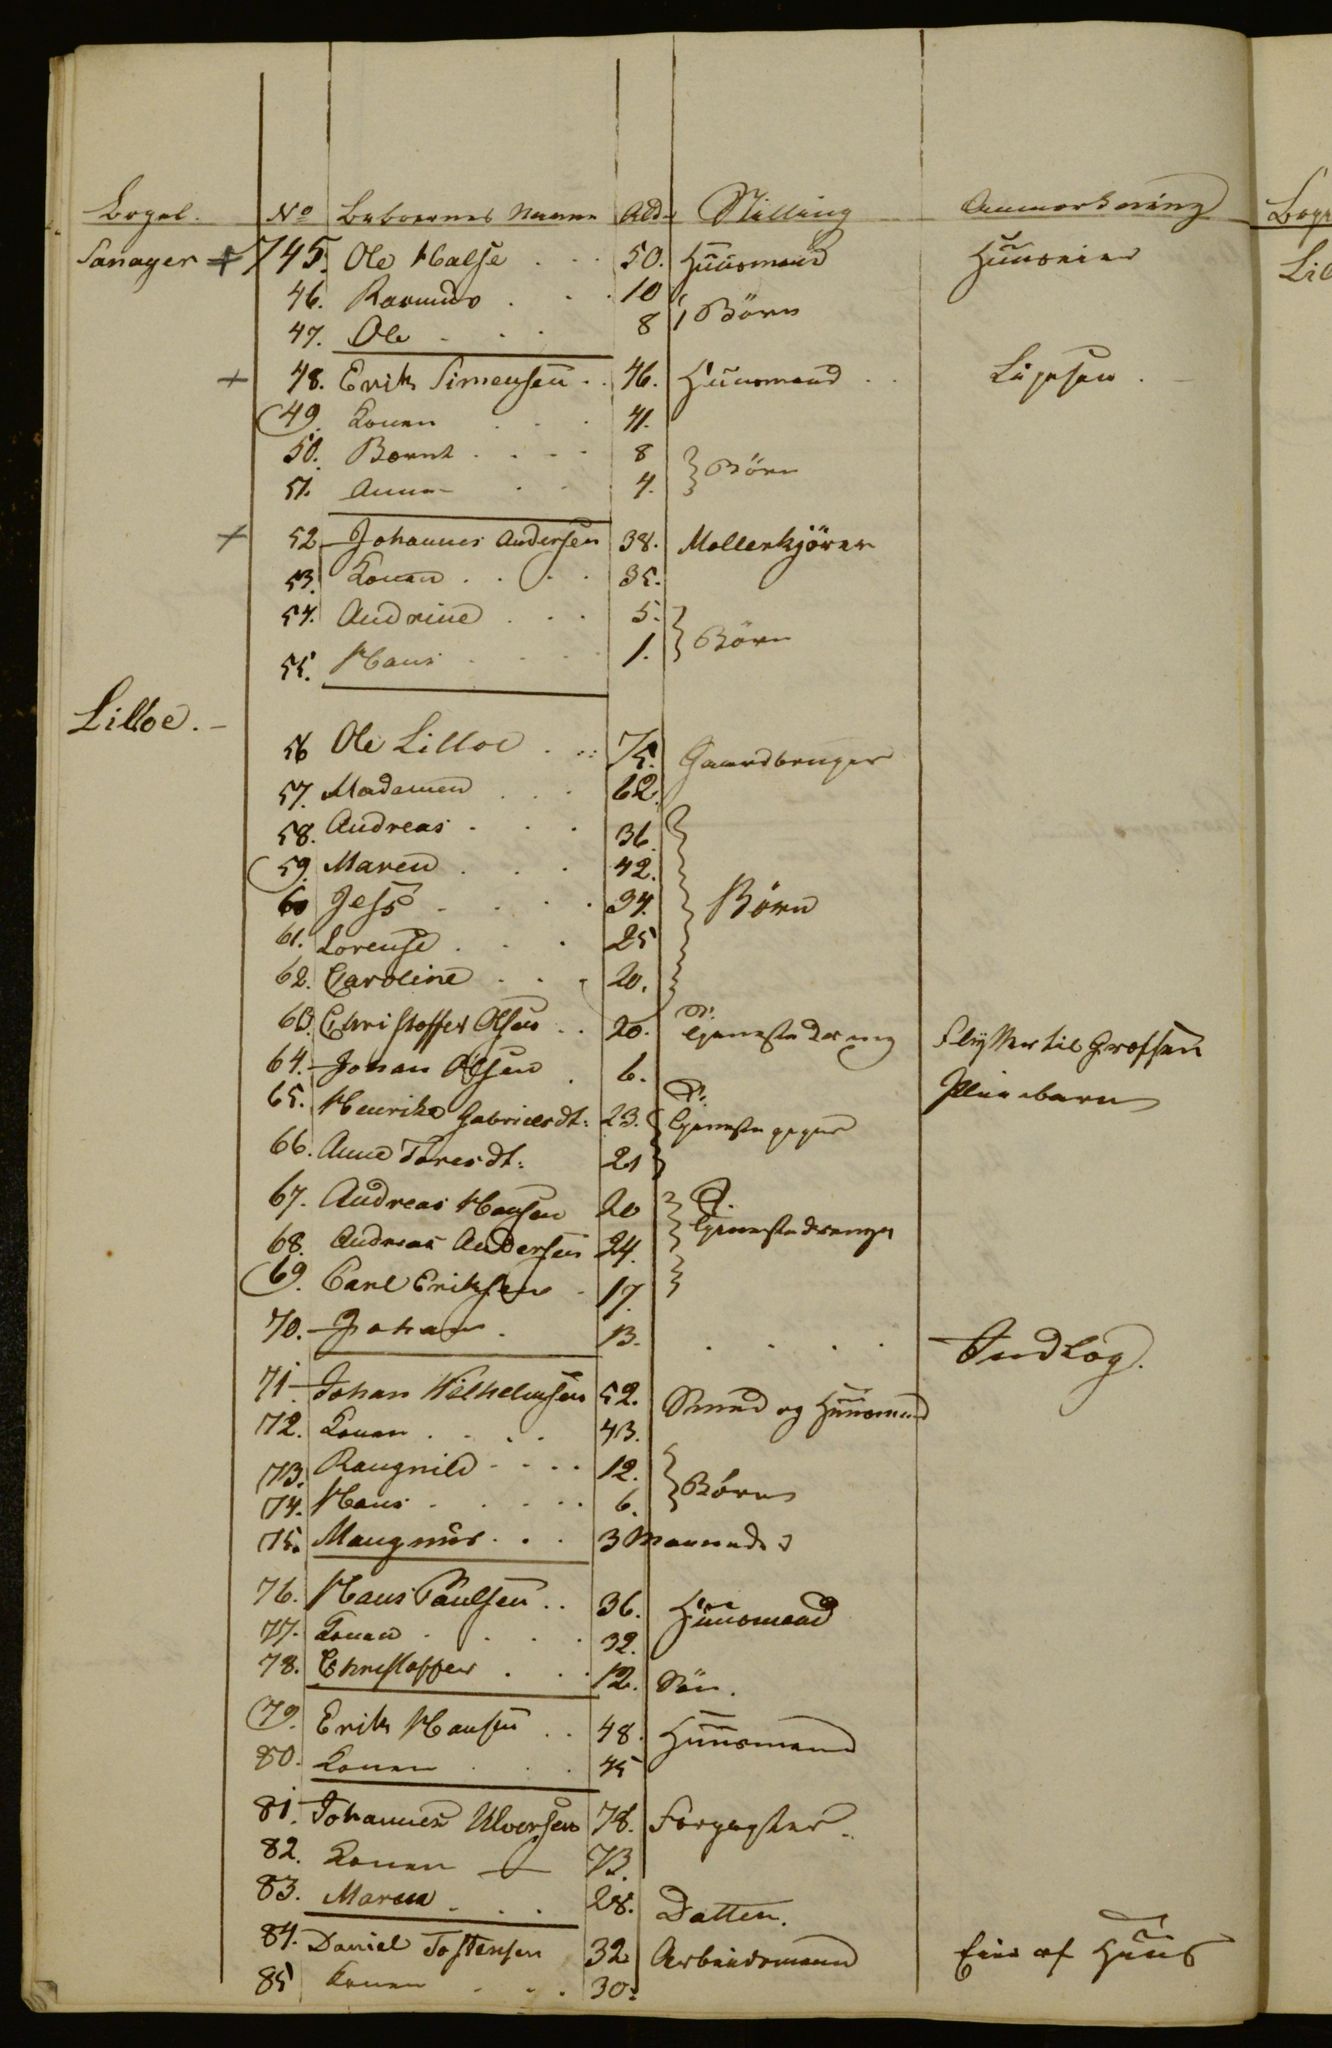 Bopæl. No Beboernes Navne Ald. Stilling Anmærkning
Tanager + 745. Ole Halse 50. Huusmand Huuseier
46. Rasmus 10
47. Ole 8 } Börn
+ 48. Erik Simensen 46. Huusmand
49. Konen 41.
50. Bernt 8
51. Anne 4. } Börn
+ 52 Johannes Andersen 38. Møllerkjörer
53. Konen 35.
54. Andrine 5.
55. Hans 1. } Börn
Lilloe.
56 Ole Lilloe 75. Gaardbruger
57. Madamen 62.
58. Andreas 36.
59. Maren 42.
60 Jess 34. } Börn
61. Lorense 25
62. Caroline 20.
63. Christoffer Olsen 20. Tjenestedreng Flytter til Grefsen
64. Johan Olsen 6. Pleiebarn
65. Henrike Gabrielsdt: 23. Tjenestepiger
66. Anne Toresdt: 21
67. Andreas Hansen 20
68. Andreas Andersen 24. } Tjenestedrenge
69. Carl Eriksen 17.
70. Johan 13. Indlog.
71 Johan Wilhelmsen 52. Smed og Huusmand
72. Konen 43.
73. Rangnild 12.
74. Hans 6. } Börn
75. Mangnus 3 Maaneder
76. Hans Paulsen 36. Huusmand
77. Konen 32.
78. Christoffer 12. Sön.
79. Erik Hansen 48. Huusmand
80. Konen 45
81. Johannes Ulversen 78. Forpagter
82. Konen 73.
83. Maren 28. Datter.
84. Daniel Tostensen 32 Arbeidsmand Eier af Huus
85 Konen 30.
Lil